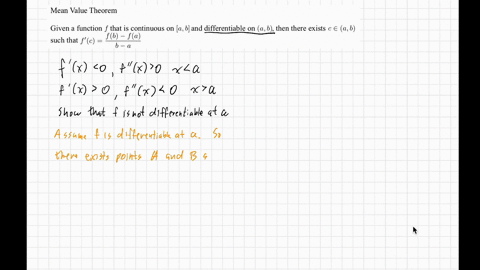 Mean Value Theorem
Given a function f that is continuous on [a, b] and differentiable on (a, b), then there exists c ∈ (a, b)
such that f'(c) = \frac{f(b) - f(a)}{b - a}
f'(x) < 0, f''(x) > 0 x < a
f'(x) > 0, f''(x) < 0 x > a
Show that f is not differentiable at a
Assume f is differentiable at a. So
there exists points A and B s